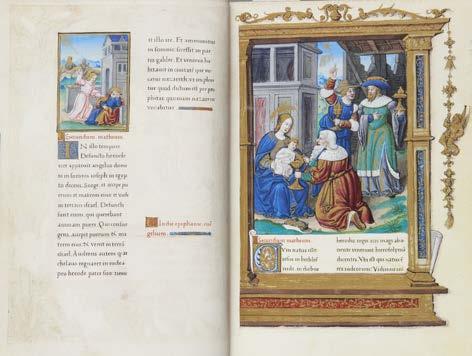 Secundum matheum
IN illo tempore
Defuncto herode
ecce apparuit angelus domi
ni in somnis ioseph in egyp
to dicens. Surge. et accipe pue
rum et matrem eius et vade
in terram israel. Defuncti
sunt enim. qui querebant
animam pueri. Qui consur
gens. accepit puerum et ma
trem eius. et venit in terram
israel. Audiens autem quod
archelaus regnaret in iudea
pro herode patre suo timu
it illo ire. Et admonitus
in somnis secessit in par
tes galilee. Et veniens ha
bitavit in civitate que vo
catur nazareth. ut adim
pleretur quod dictum est per
prophetas quoniam nazareus
vocabitur.
In die epiphanie. eva
gelium
Secundum matheum
CUm natus esset
iesus in bethleem
iude. in diebus
herodis regis ecce magi ab o
riente venerunt hierosolymam
dicentes. Ubi est qui natus est
rex iudeorum? Vidimus eni